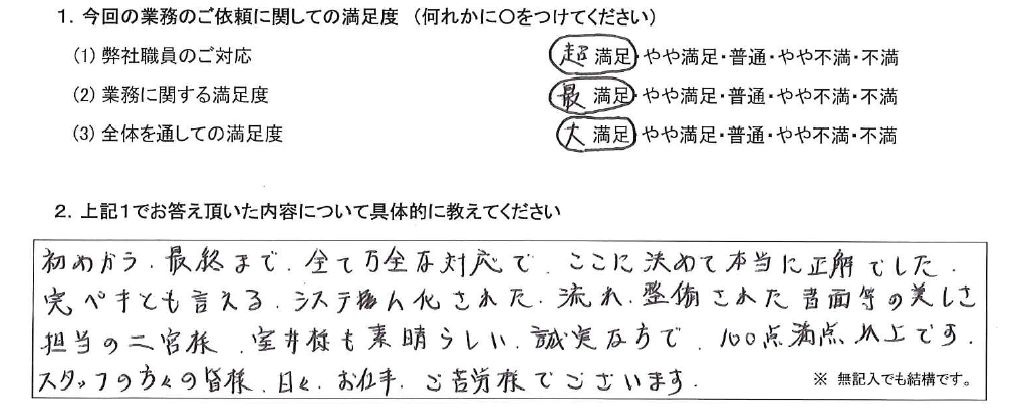 1. 今回の業務のご依頼に関しての満足度 (何れかに〇をつけてください)
(1) 弊社職員のご対応 超 満足・やや満足・普通・やや不満・不満
(2) 業務に関する満足度 最 満足・やや満足・普通・やや不満・不満
(3) 全体を通しての満足度 大 満足・やや満足・普通・やや不満・不満
2. 上記1でお答え頂いた内容について具体的に教えてください
初めから、最終まで、全て万全な対応で、ここに決めて本当に正解でした.
完ペキとも言える、システム化された、流れ、整備された書面等の美しさ
担当の二宮様、室井様も素晴らしい、誠実な方で、100点満点以上です.
スタッフの方々の皆様、日々、お仕事、ご苦労様でございます.
※ 無記入でも結構です。